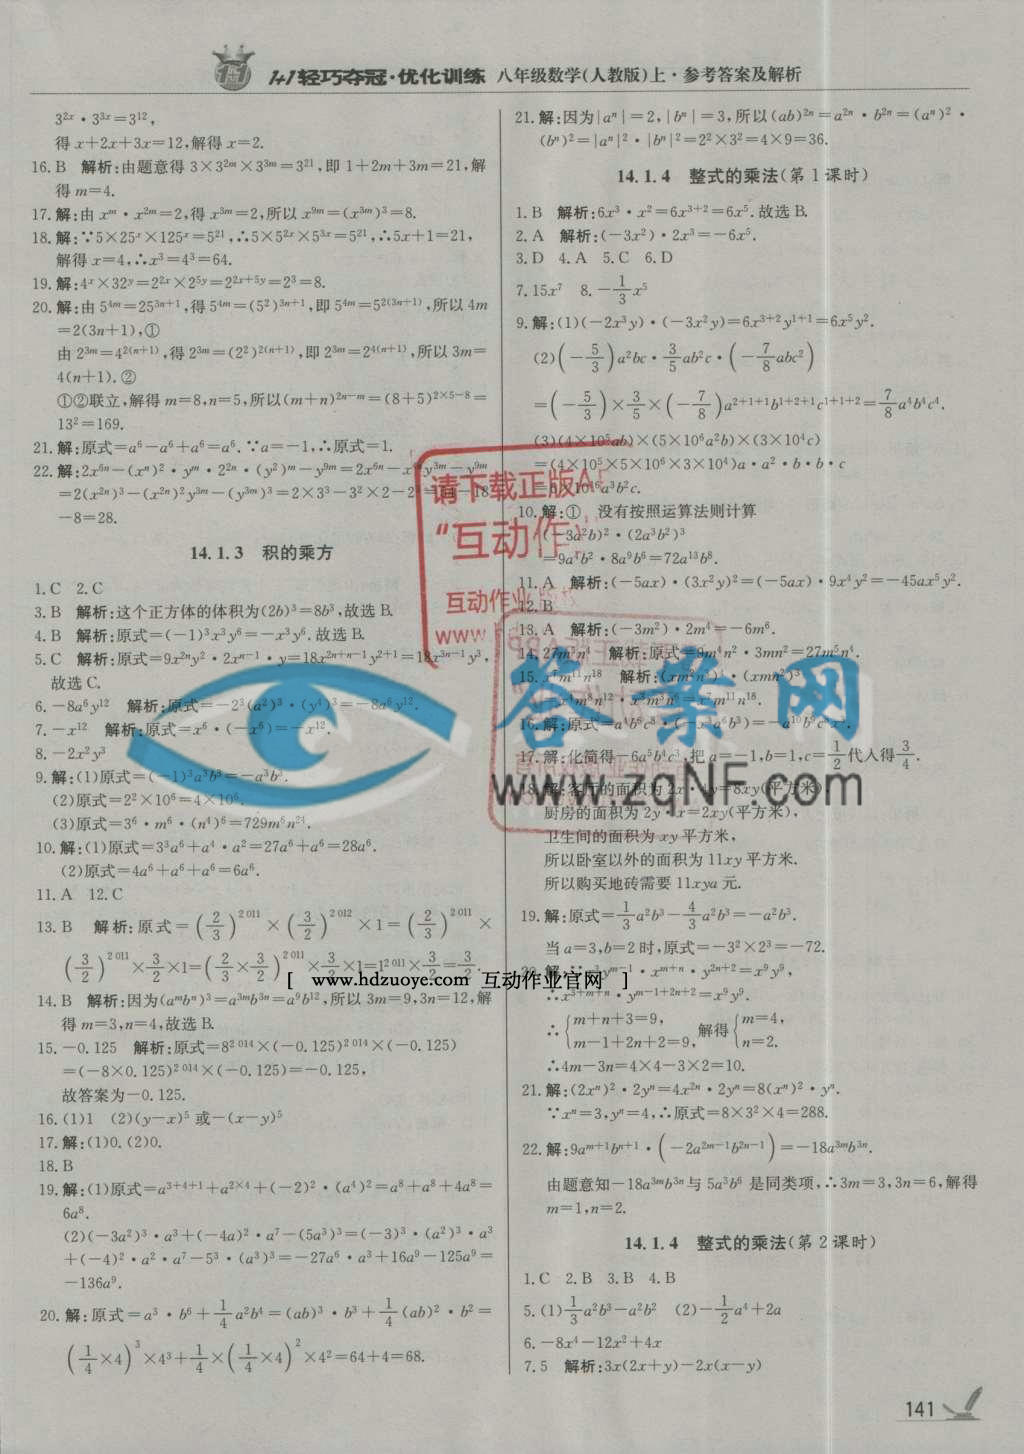 1+1轻巧夺冠·优化训练 八年级数学(人教版)上·参考答案及解析
3^{2x}·3^{3x}=3^{12},
得x+2x+3x=12,解得x=2.
16.B 解析:由题意得3×3^{2m}×3^{3m}=3^{21},即1+2m+3m=21,解
得m=4.
17.解:由x^m·x^{2m}=2,得x^{3m}=2,所以x^{9m}=(x^{3m})^3=8.
18.解:∵5×25^x×125^x=5^{21},∴5×5^{2x}×5^{3x}=5^{21},∴5x+1=21,
解得x=4,∴x^3=4^3=64.
19.解:4^x×32^y=2^{2x}×2^{5y}=2^{2x+5y}=2^3=8.
20.解:由5^{4m}=25^{3n+1},得5^{4m}=(5^2)^{3n+1},即5^{4m}=5^{2(3n+1)},所以4m
=2(3n+1),①
由2^{3m}=4^{2(n+1)},得2^{3m}=(2^2)^{2(n+1)},即2^{3m}=2^{4(n+1)},所以3m=
4(n+1).②
①②联立,解得m=8,n=5,所以(m+n)^{2n-m}=(8+5)^{2×5-8}=
13^2=169.
21.解:原式=a^6-a^6+a^6=a^6.∵a=-1,∴原式=1.
22.解:2x^{6n}-(x^n)^2·y^m·2^{2n}·(y^2)^m-y^{9m}=2x^{6n}-x y^{3m}-y^{9m}
=2(x^{2n})^3-(x^{2n})^2y^{3m}-(y^{3m})^3=2×3^3-3^2×2-2
-8=28.
14.1.3 积的乘方
1.C 2.C
3.B 解析:这个正方体的体积为(2b)^3=8b^3,故选B.
4.B 解析:原式=(-1)^3x^3y^6=-x^3y^6.故选B.
5.C 解析:原式=9x^{2n}y^2·2x^{n-1}·y=18x^{2n+n-1}y^{2+1}=18x^{3n-1}y^3,
故选C.
6.-8a^6y^{12} 解析:原式=-2^3(a^2)^3·(y^4)^3=-8a^6y^{12}.
7.-x^{12} 解析:原式=x^6·(-x^6)=-x^{12}.
8.-2x^2y^3
9.解:(1)原式=(-1)^3a^3b^3=-a^3b^3.
(2)原式=2^2×10^6=4×10^6.
(3)原式=3^6·m^6·(n^4)^6=729m^6n^{24}.
10.解:(1)原式=3^3a^6+a^4·a^2=27a^6+a^6=28a^6.
(2)原式=4a^6+a^6+a^6=6a^6.
11.A 12.C
13.B 解析:原式=(2/3)^{2 011}×(3/2)^{2 012}×1=(2/3)^{2 011}×
(3/2)^{2 011}×3/2×1=(2/3×3/2)^{2 011}×3/2×1=1^{2 011}×3/2=3/2.
14.B 解析:因为(a^mb^n)^3=a^{3m}b^{3n}=a^9b^{12},所以3m=9,3n=12,解
得m=3,n=4,故选B.
15.-0.125 解析:原式=8^{2 014}×(-0.125)^{2 014}×(-0.125)
=(-8×0.125)^{2 014}×(-0.125)=-0.125,
故答案为-0.125.
16.(1)1 (2)(y-x)^5或-(x-y)^5
17.解:(1)0.(2)0.
18.B
19.解:(1)原式=a^{3+4+1}+a^{2×4}+(-2)^2·(a^4)^2=a^8+a^8+4a^8=
6a^8.
(2)(-3a^2)^3·a^3+(-4a)^2·a^7-(5a^3)^3=(-3)^3·(a^2)^3·a^3
+(-4)^2·a^2·a^7-5^3·(a^3)^3=-27a^6·a^3+16a^9-125a^9=
-136a^9.
20.解:原式=a^3·b^6+1/4a^2b^4=(ab)^3·b^3+1/4(ab)^2·b^2=
(1/4×4)^3×4^3+1/4×(1/4×4)^2×4^2=64+4=68.
21.解:因为|a^n|=2,|b^n|=3,所以(ab)^{2n}=a^{2n}·b^{2n}=(a^n)^2·
(b^n)^2=|a^n|^2·|b^n|^2=2^2×3^2=4×9=36.
14.1.4 整式的乘法(第1课时)
1.B 解析:6x^3·x^2=6x^{3+2}=6x^5.故选B.
2.A 解析:(-3x^2)·2x^3=-6x^5.
3.D 4.A 5.C 6.D
7.15x^7 8.-1/3x^5
9.解:(1)(-2x^3y)·(-3x^2y)=6x^{3+2}y^{1+1}=6x^5y^2.
(2)(-5/3)a^2bc·3/5ab^2c·(-7/8abc^2)
=(-5/3)×3/5×(-7/8)a^{2+1+1}b^{1+2+1}c^{1+1+2}=7/8a^4b^4c^4.
(3)(4×10^5ab)×(5×10^6a^2b)×(3×10^4c)
=(4×10^5×5×10^6×3×10^4)a·a^2·b·b·c
=6×10^{16}a^3b^2c.
10.解:① 没有按照运算法则计算
(-3a^2b)^2·(2a^3b^2)^3
=9a^4b^2·8a^9b^6=72a^{13}b^8.
11.A 解析:(-5ax)·(3x^2y)^2=(-5ax)·9x^4y^2=-45ax^5y^2.
12.B
13.A 解析:(-3m^2)·2m^4=-6m^6.
14.27m^5n^4 解析:原式=9m^4n^2·3mn^2=27m^5n^4.
15.x^7m^{11}n^{18} 解析:(xm^2n^3)^4·(xmn^2)^3
=x^4m^8n^{12}·x^3m^3n^6=x^7m^{11}n^{18}.
16.解:原式=
17.解:化简得-6a^5b^4c^3,把a=-1,b=1,c=1/2代入得3/4.
18.解:客厅的面积为2x·4y=8xy(平方米),
厨房的面积为2y·x=2xy(平方米),
卫生间的面积为xy平方米,
所以卧室以外的面积为11xy平方米.
所以购买地砖需要11xya元.
19.解:原式=1/3a^2b^3-4/3a^2b^3=-a^2b^3.
当a=3,b=2时,原式=-3^2×2^3=-72.
20.解:∵x^3y^{m-1}·x^{m+n}·y^{2n+2}=x^9y^9,
∴x^{3+m+n}·y^{m-1+2n+2}=x^9y^9.
∴{m+n+3=9, m-1+2n+2=9, 解得{m=4, n=2.
∴4m-3n=4×4-3×2=10.
21.解:(2x^n)^2·2y^n=4x^{2n}·2y^n=8(x^n)^2·y^n.
∵x^n=3,y^n=4,∴原式=8×3^2×4=288.
22.解:9a^{m+1}b^{n+1}·(-2a^{2m-1}b^{2n-1})=-18a^{3m}b^{3n}.
由题意知-18a^{3m}b^{3n}与5a^3b^6是同类项,∴3m=3,3n=6,解得
m=1,n=2.
14.1.4 整式的乘法(第2课时)
1.C 2.B 3.B 4.B
5.(1)1/3a^2b^3-a^2b^2 (2)-1/2a^4+2a
6.-8x^4-12x^2+4x
7.5 解析:3x(2x+y)-2x(x-y)
141
请下载正版A
“互动作
互动作业
www
答案网
www.zqNF.com
[ www.hdzuoye.com 互动作业官网 ]